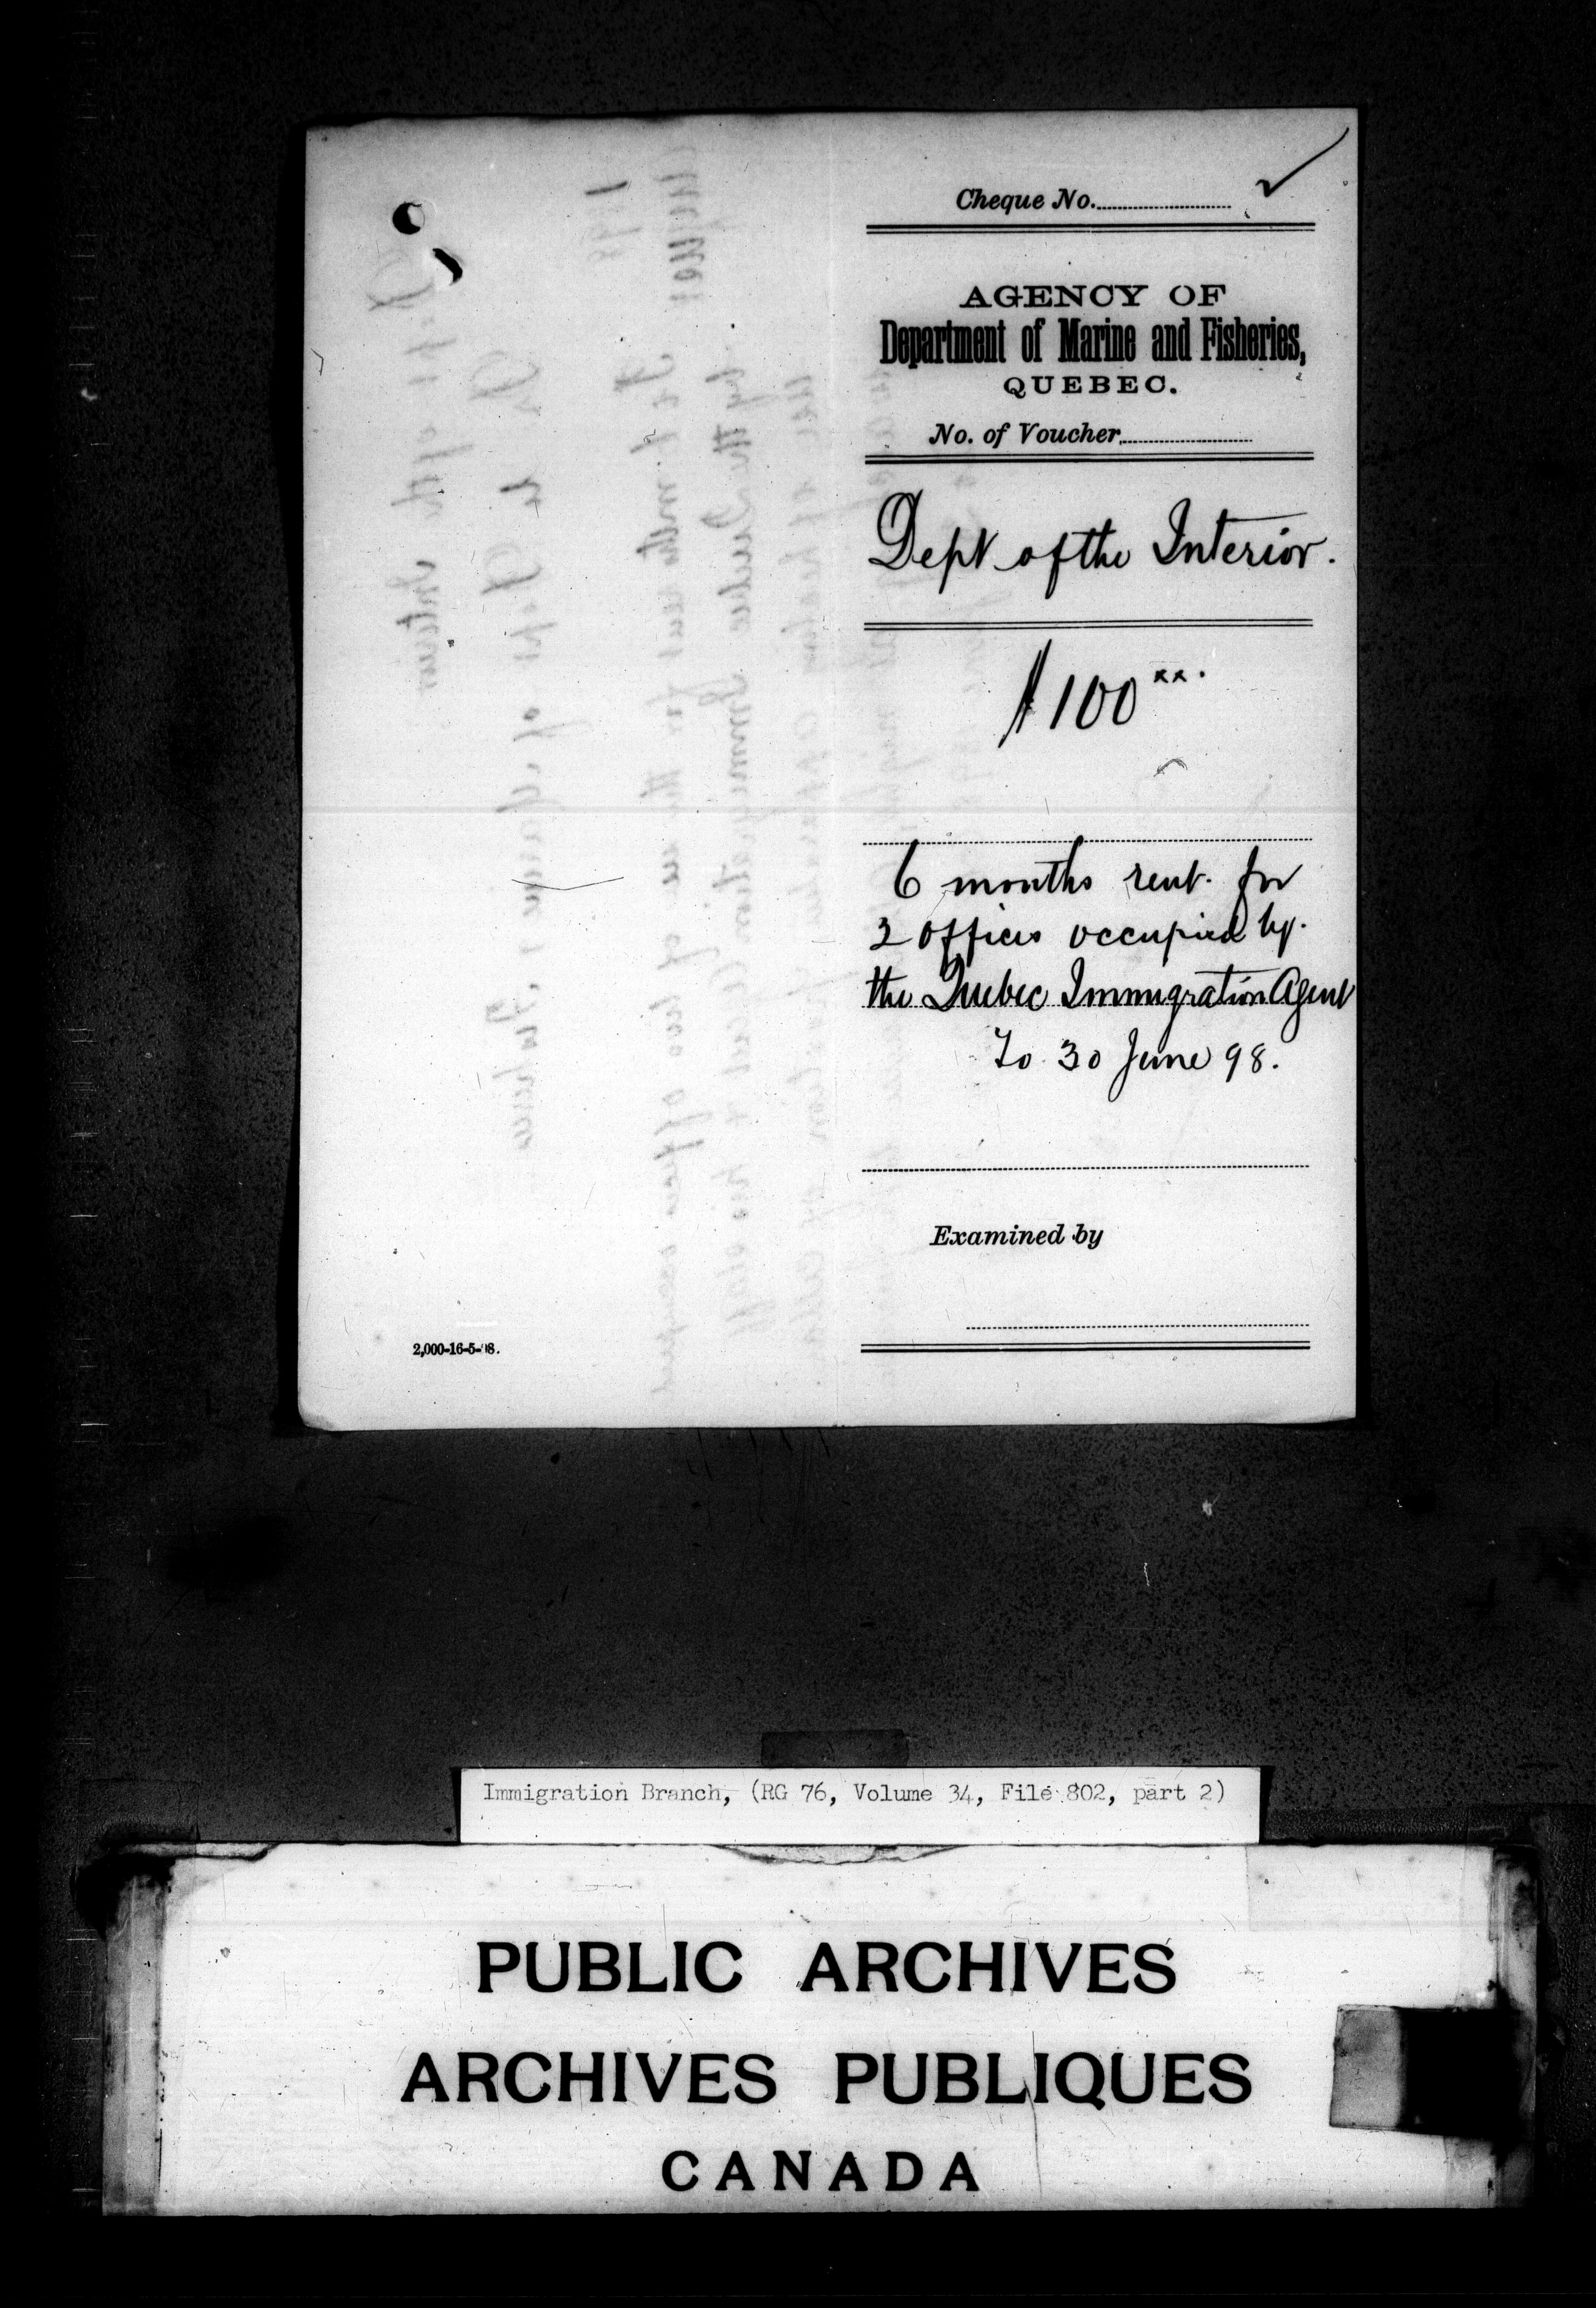 Cheque No.
AGENCY OF
Department of Marine and Fisheries,
QUEBEC.
No. of Voucher
Dept of the Interior.
$100 xx.
6 months rent for
2 offices occupied by
the Quebec Immigration Agent
To 30 June 98.
Examined by
2,000-16-5-98.
Immigration Branch, (RG 76, Volume 34, File 802, part 2)
PUBLIC ARCHIVES
ARCHIVES PUBLIQUES
CANADA